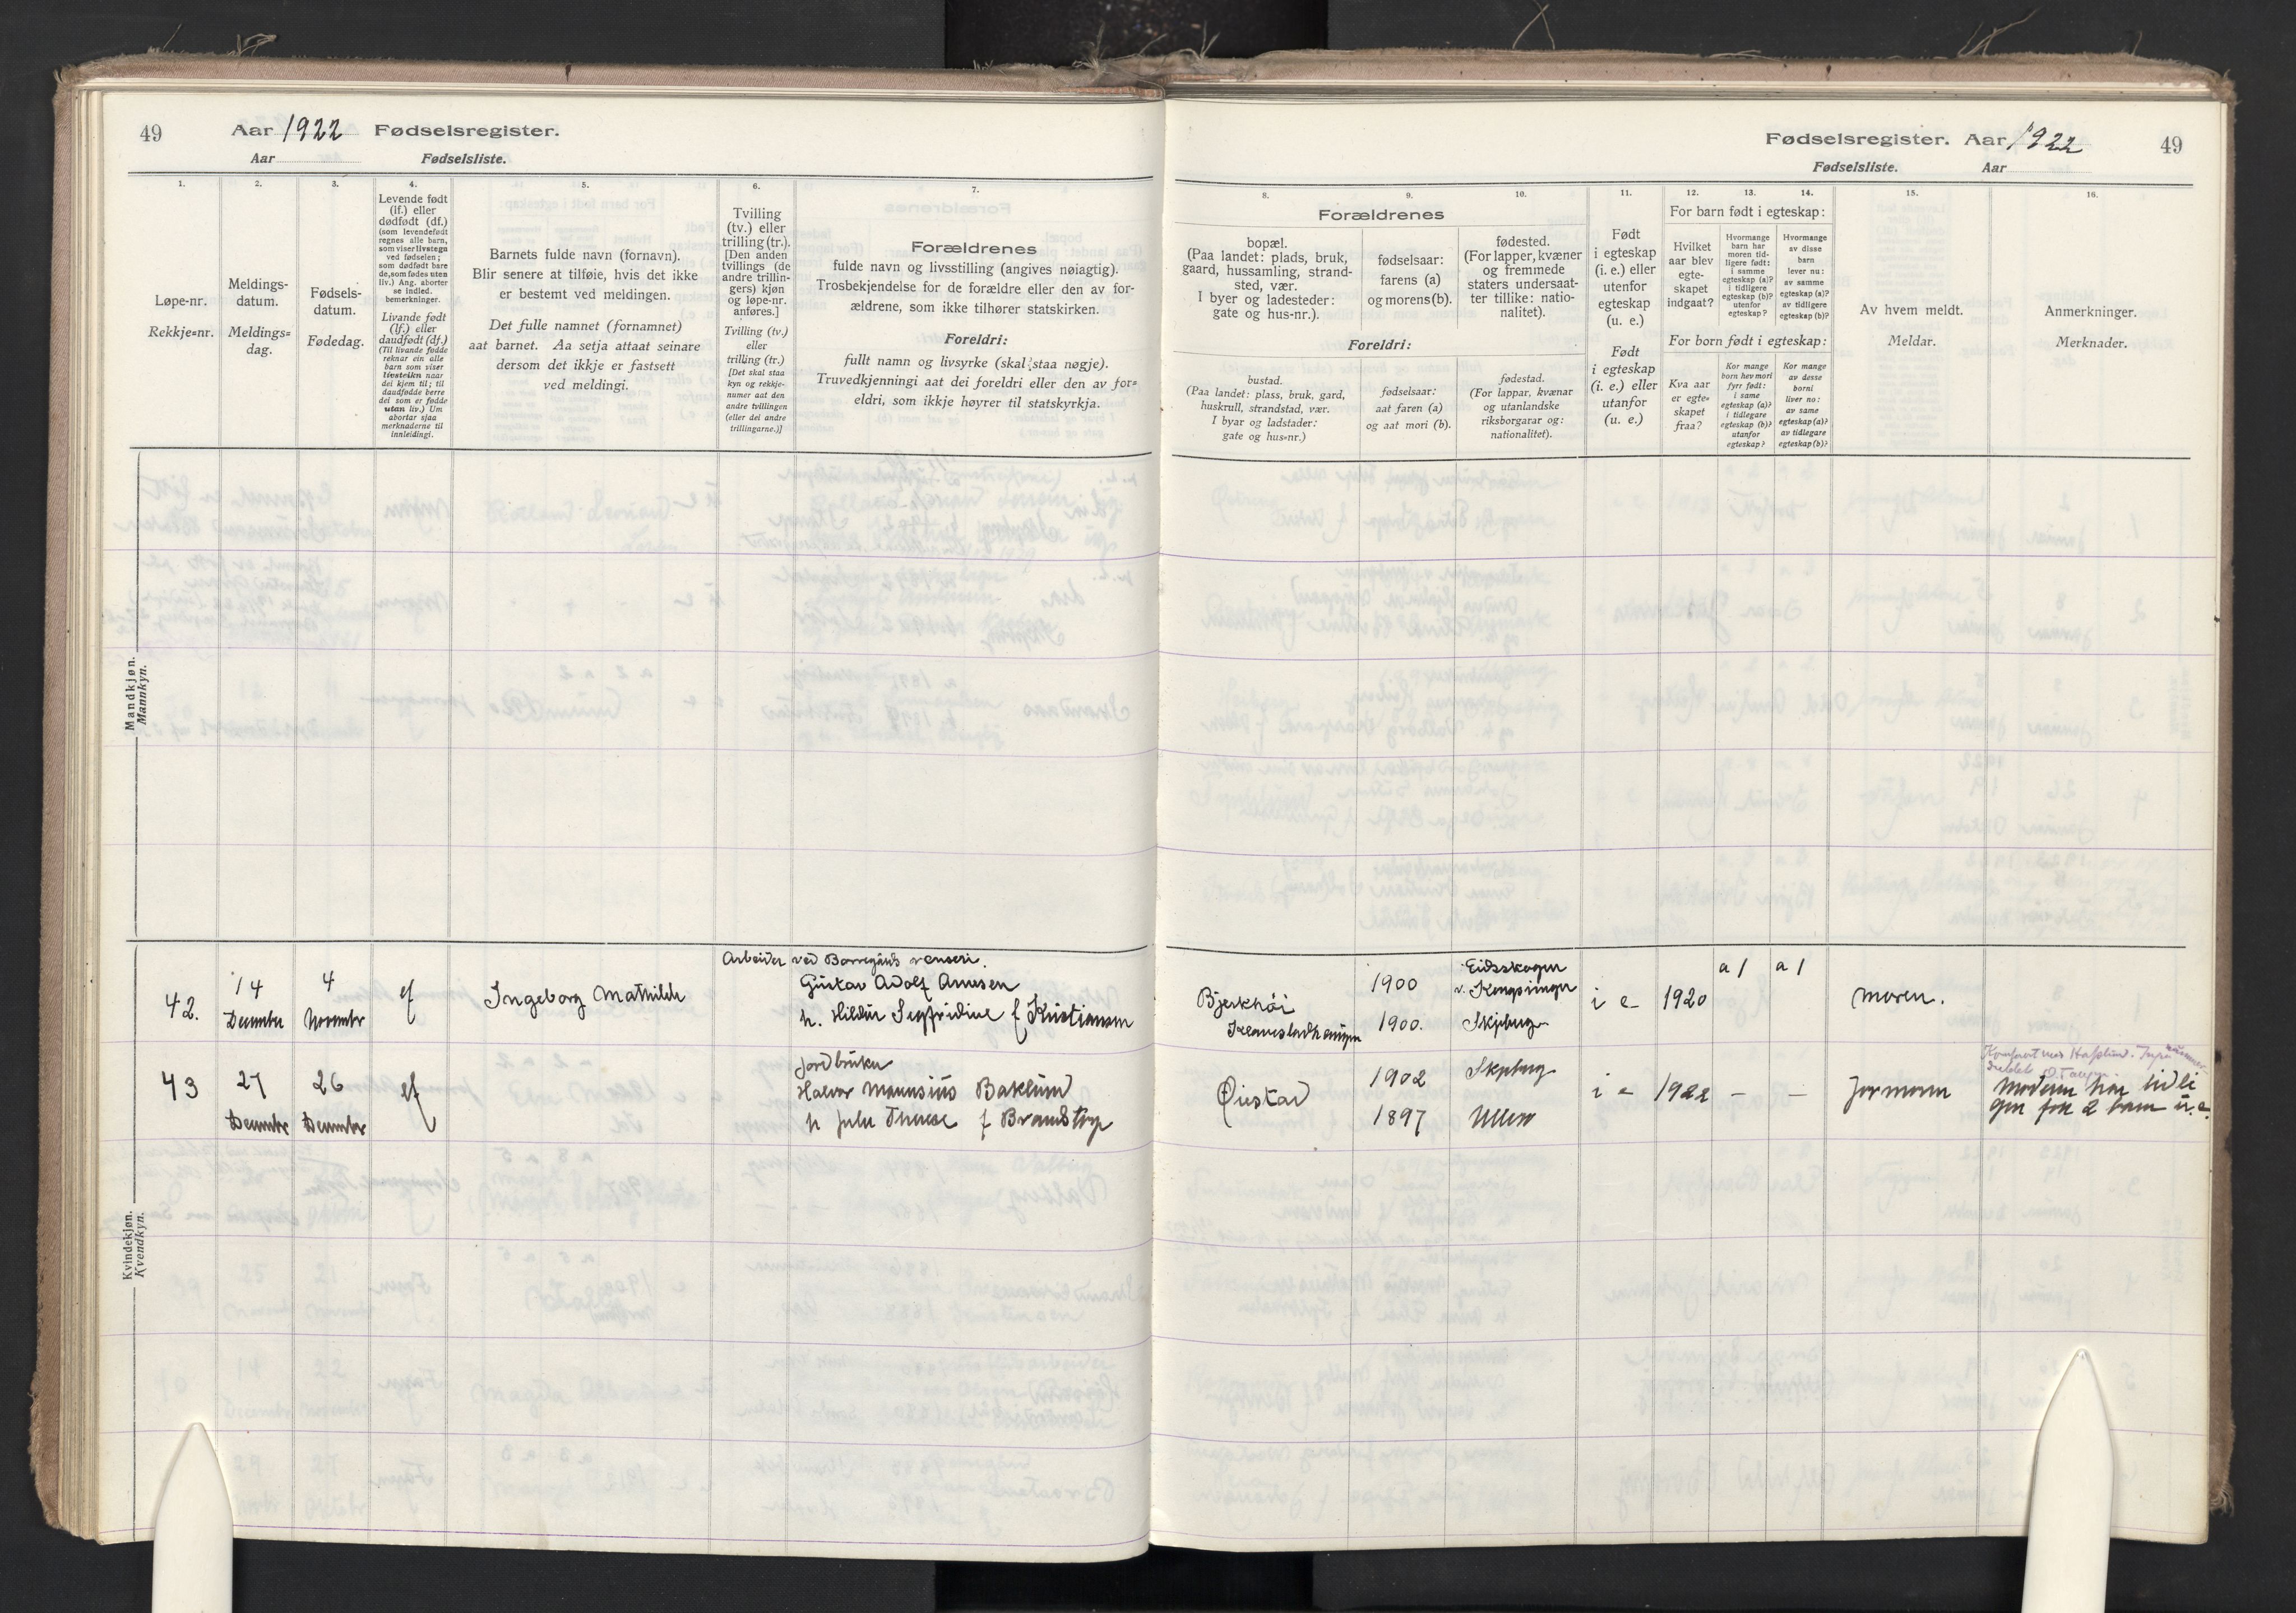 49 Aar 1922 Fødselsregister.
Aar Fødselsliste.
1.
Løpe-nr.
Rekkje=nr.
2.
Meldings-
datum.
Meldings=
dag.
3.
Fødsels-
datum.
Fødedag.
4.
Levende født
(lf.) eller
dødfødt (df.)
(som levendefødt
regnes alle barn,
som viser livstegn
ved fødselen;
som dødfødt bare
de, som fødes uten
liv.) Ang. aborter
se indled.
bemerkninger.
Livande født
(lf.) eller
daudfødt (df.)
(Til livande fødde
reknar ein alle
barn som viser
livsteikn naar
dei kjem til; til
daudfødde berre
dei som er fødde
utan liv.) Um
abortar sjaa
merknaderne til
innleidingi.
5.
Barnets fulde navn (fornavn).
Blir senere at tilføie, hvis det ikke
er bestemt ved meldingen.
Det fulle namnet (fornamnet)
aat barnet. Aa setja attaat seinare
dersom det ikkje er fastsett
ved meldingi.
6.
Tvilling
(tv.) eller
trilling (tr.).
[Den anden
tvillings (de
andre trillin-
gers) kjøn
og løpe-nr.
anføres.]
Tvilling (tv.)
eller
trilling (tr.)
[Det skal staa
kyn og rekkje-
numer aat den
andre tvillingen
(eller dei andre
trillingarne.)]
7.
Forældrenes
fulde navn og livsstilling (angives nøiagtig).
Trosbekjendelse for de forældre eller den av for-
ældrene, som ikke tilhører statskirken.
Foreldri:
fullt namn og livsyrke (skal staa nøgje).
Truvedkjenningi aat dei foreldri eller den av for=
eldri, som ikkje høyrer til statskyrkja.
Mandkjøn.
Mannkyn.
42.
14
December
4
November
lf
Ingeborg Mathilde
Arbeider ved Borregårds renseri.
Gustav Adolf Arnesen
h. Hildur Segfridine f Kristiansen
43
27
December
26
December
lf
Jordbruker
Halvor Mauusius Baklund
h Julie Therese f Brandstorp
Kvindekjøn.
Kvendkyn.
Fødselsregister. Aar 1922 49
Fødselsliste. Aar
8.
9.
10.
Forældrenes
bopæl.
(Paa landet: plads, bruk,
gaard, hussamling, strand-
sted, vær.
I byer og ladesteder:
gate og hus-nr.).
fødselsaar:
farens (a)
og morens (b).
fødested.
(For lapper, kvæner
og fremmede
staters undersaat-
ter tillike: natio-
nalitet).
Foreldri:
bustad.
(Paa landet: plass, bruk, gard,
huskrull, strandstad, vær.
I byar og ladstader:
gate og hus=nr.)
fødselsaar:
aat faren (a)
og aat mori (b).
fødestad.
(For lappar, kvænar
og utanlandske
riksborgarar og:
nationalitet).
11.
Født
i egteskap
(i. e.) eller
utenfor
egteskap
(u. e.)
Født
i egteskap
(i. e.) eller
utanfor
(u. e.)
12.
13.
14.
For barn født i egteskap:
Hvilket
aar blev
egte-
skapet
indgaat?
Hvormange
barn har
moren tid-
ligere født:
i samme
egteskap (a)?
i tidligere
egteskap (b)?
utenfor
egteskap?
Hvormange
av disse
barn
lever nu:
av samme
egteskap (a)?
av tidligere
egteskap (b)?
For born født i egteskap:
Kva aar
er egte=
skapet
fraa?
Kor mange
born hev mori
fyrr født:
i same
egteskap (a)?
i tidlegare
egteskap (b)?
utanfor
egteskap?
Kor mange
av desse
borni
liver no:
av same
egteskap (a)?
av tidlegare
egteskap (b)?
15.
Av hvem meldt.
Meldar.
16.
Anmerkninger.
Merknader.
Bjerkhøi
1900
1900.
Eidsskogen
v. Kongsvinger
Skjeberg
i e
1920
a 1
a 1
moren.
Øiestad
1902
1897
Skjeberg
Ullerø
i e
1922
–
–
Jormoren
Moderen har tidli
gere født 2 barn u. e.